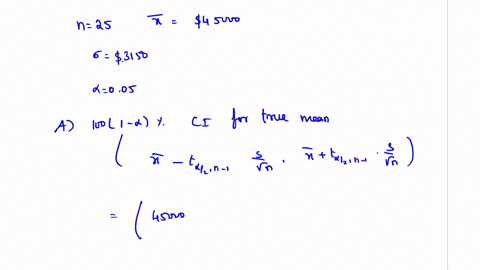 n=25 x̄ = $45000
σ=$3150
α=0.05
A) 100(1-α) %. CI for true mean
( x̄ - t α/2, n-1 s/√n , x̄ + t α/2, n-1 · s/√n )
= ( 45000